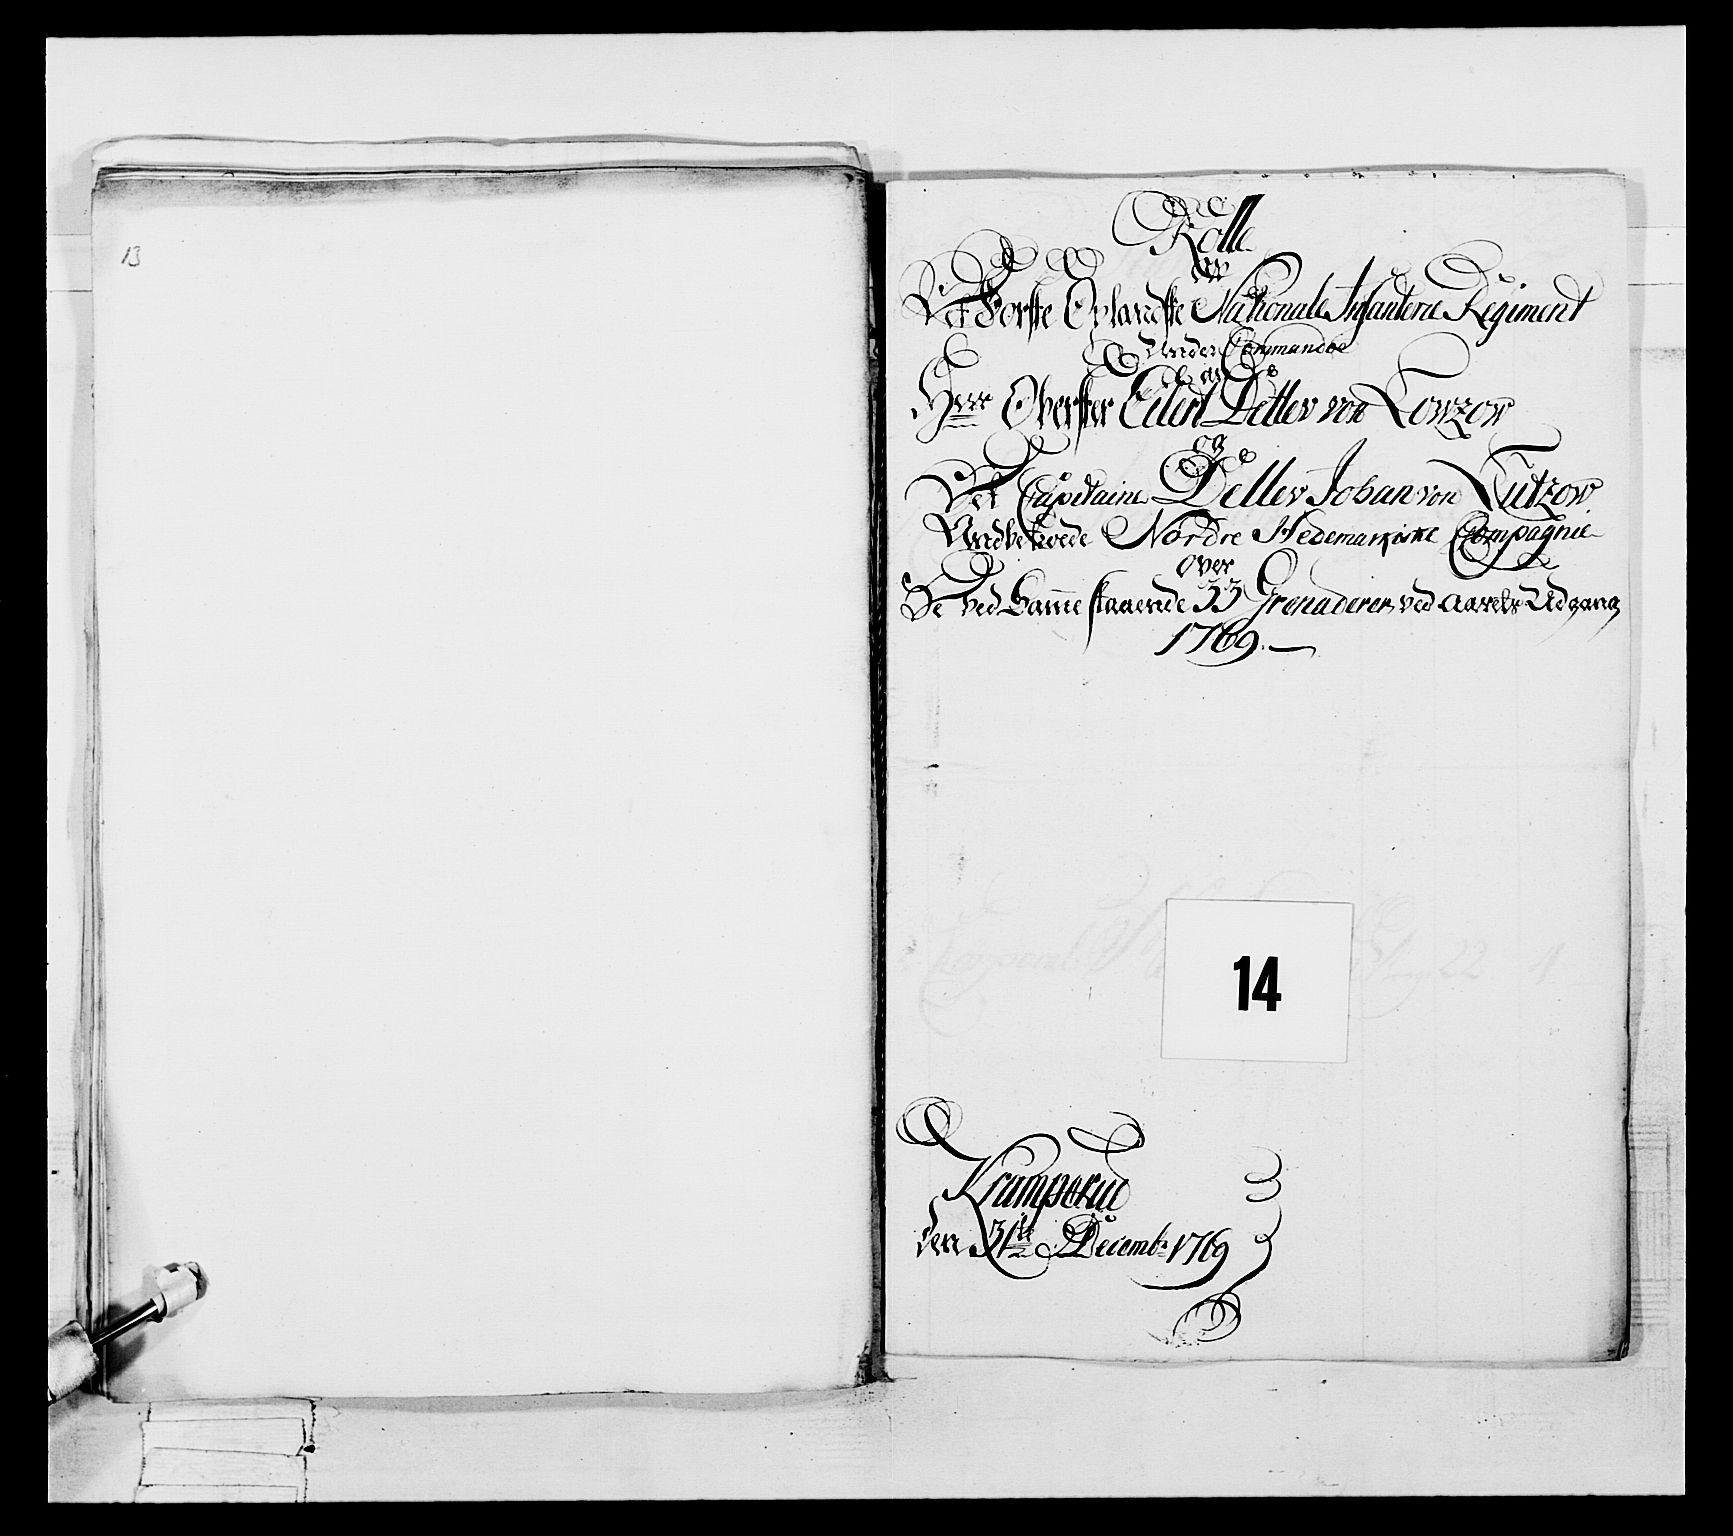 13
Rolle
av
Det Første Oplandske Nationale Infanterie Regiment
Under Commando
av
Herr Oberster Eilert Detlev von Lowzow
og
Det Capitaine Detlev Johan von Lutzow
Nordre Hedemarkiske Compagnie
Over
De ved Samme staaende 33 Grenaderer ved Aarets Udgang
1769.
14
Kramperud
den 31te Decembr 1769